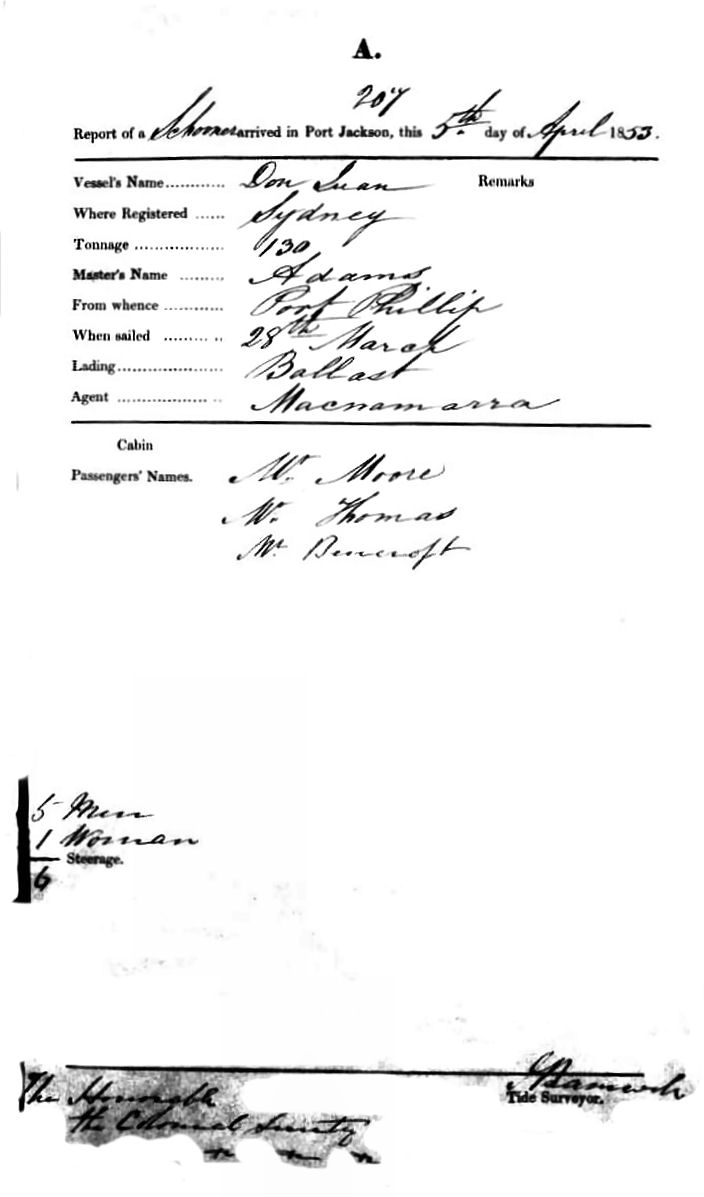 A.
207
Report of a Schooner arrived in Port Jackson, this 5th day of April 1853.
Vessel's Name ............ Don Juan Remarks
Where Registered ...... Sydney
Tonnage .................. 130
Master's Name ......... Adams
From whence ............ Port Phillip
When sailed ......... .. 28th March
Lading...................... Ballast
Agent .................. .. Macnamarra
Cabin
Passengers' Names. Mr. Moore
Mr. Thomas
Mr Bencroft
5 Men
1 Woman
Steerage.
6
The Honorable
Tide Surveyor.
the Colonial Secretary